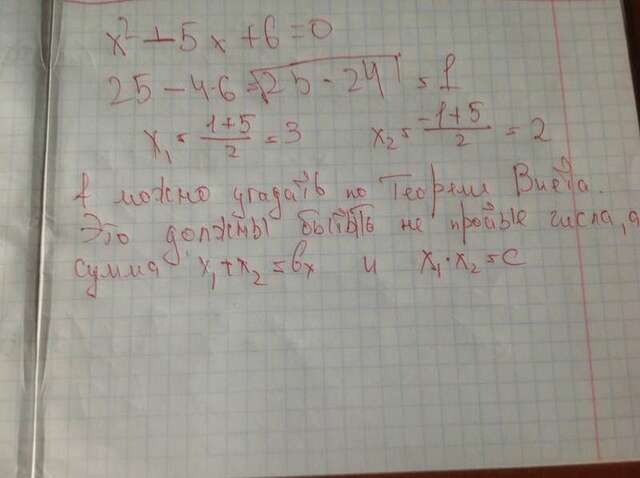 x² + 5x + 6 = 0
25 - 4·6 = √25 - 24 = 1
x₁ = (1+5)/2 = 3 x₂ = (-1+5)/2 = 2
А можно угадать по Теореми Виета.
Это должны быть не простые числа, а
сумма x₁ + x₂ = bx и x₁ · x₂ = c